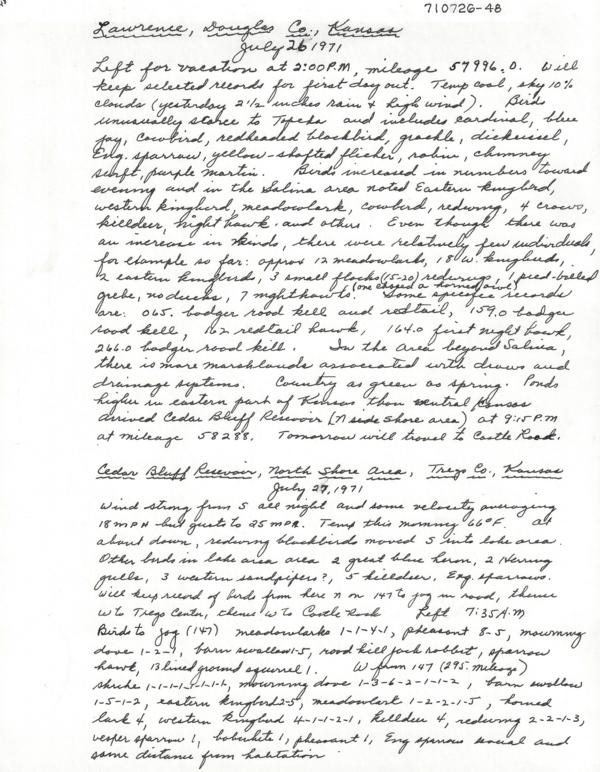 710726-48
Lawrence, Douglas Co., Kansas
July 26 1971
Left for vacation at 2:00 P.M, mileage 57996.0. Will
keep selected records for first day out. Temp cool, sky 10%
clouds (yesterday 2 1/2 inches rain & high wind). Birds
unusually starce to Topeka and includes cardinal, blue
jay, cowbird, redheaded blackbird, grackle, dickcissel,
Eng. sparrow, yellow-shafted flicker, robin, chimney
swift, purple martin. Birds increased in numbers toward
evening and in the Salina area noted Eastern kingbird,
western kingbird, meadowlark, cowbird, redwing, 4 crows,
killdeer, night hawk and others. Even though there was
an increase in kinds, there were relatively few individuals,
for example so far: approx 12 meadowlarks, 18 W. kingbirds,
2 eastern kingbirds, 3 small flocks (15-20) redwings, 1 pied-billed
grebe, no ducks, 7 nighthawks. (one chased a horned owl) Some specific records
are: 065. badger road kill and redtail, 159.0 badger
road kill, 162 redtail hawk, 164.0 first night hawk,
266.0 badger road kill. In the area beyond Salina,
there is more marshlands associated with draws and
drainage systems. Country as green as spring. Ponds
higher in eastern part of Kansas than central Kansas
arrived Cedar Bluff Resevoir [N side Shore area) at 9:15 P.M
at mileage 58288. Tomorrow will travel to Castle Rock.
Cedar Bluff Resevoir, North Shore Area, Trego Co., Kansas
July 27, 1971
Wind strong from S all night and some velocity averaging
18 MPH but gusts to 25 MPR. Temp this morning 66°F. At
about dawn, redwing blackbirds moved S into lake area.
Other birds in lake area 2 great blue heron, 2 Herring
gulls, 3 western sandpipers?, 5 killdeer, Eng. sparrows.
Will keep record of birds from here N on 147 to jog in road, thence
W to Trego Center, thence W to Castle Rock Left 7:35 A.M
Birds to jog (147) meadowlarks 1-1-4-1, pheasant 8-5, mourning
dove 1-2-1, barn swallow 1-5, road kill jack rabbit, sparrow
hawk, 13 lined ground squirrel 1. W from 147 (295. mileage)
shrike 1-1-1-1-1-1-1, mourning dove 1-3-6-2-1-1-2, barn swallow
1-5-1-2, eastern kingbird 2-5, meadowlark 1-2-2-1-5, horned
lark 4, western kingbird 4-1-1-2-1, killdeer 4, redwing 2-2-1-3,
vesper sparrow 1, bobwhite 1, pheasant 1, Eng sparrow several and
some distance from habitation